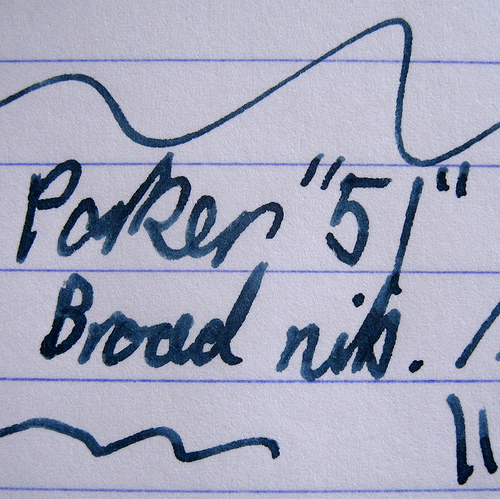 Parker "51"
Broad nib.